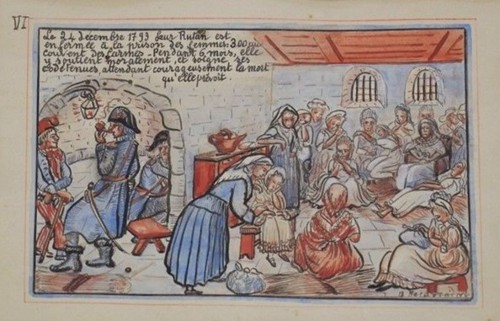 VI
Le 24 decembre 1793 Sœur Rutan est
enfermée à la prison des femmes. 300 au
couvent des Carmes - Pendant 6 mois, elle
y soutient moralement, et soigne ses
codetenues, attendant courageusement la mort
qu'elle prévoit.